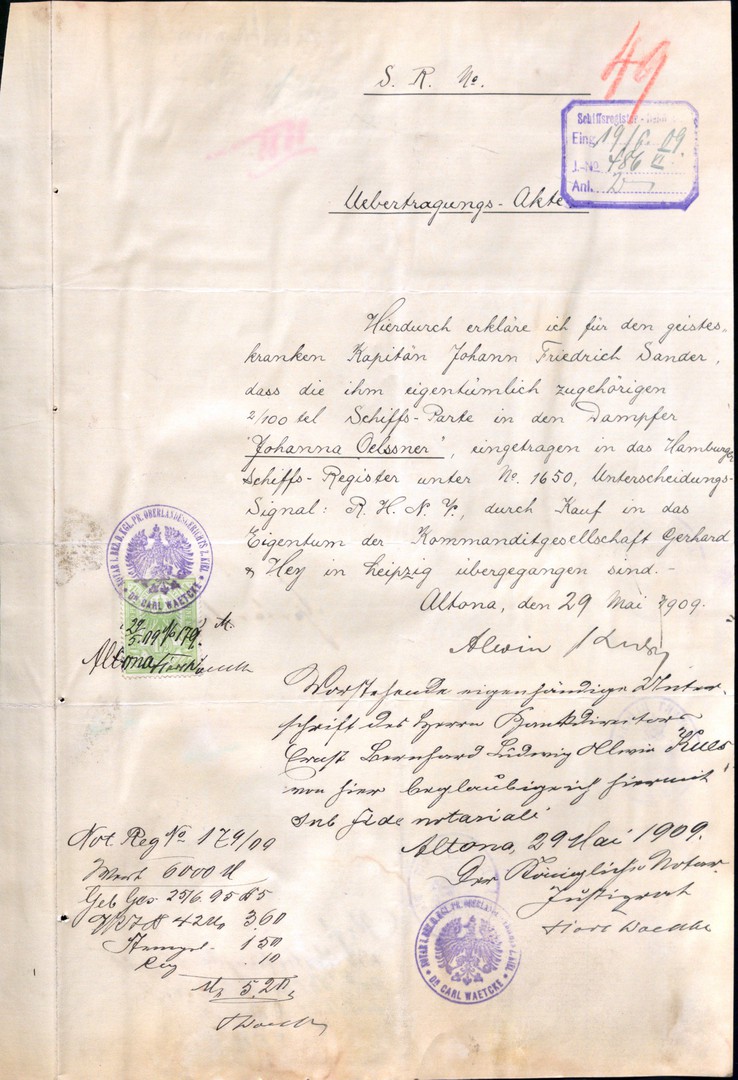 S. R. No.
49
Schiffsregister
Eing. 19/6. 09.
J.-No 486 II
Anl.
Uebertragungs-Akte
Hierdurch erkläre ich für den geistes-
kranken Kapitän Johann Friedrich Sander,
dass die ihm eigentümlich zugehörigen
2/100 tel Schiffs-Parte in den Dampfer
"Johanna Oelssner", eingetragen in das Hamburger
Schiffs-Register unter No. 1650, Unterscheidungs-
Signal: R. H. N. , durch Kauf in das
Eigentum der Kommanditgesellschaft Gerhard
& Hey in Leipzig übergegangen sind.-
Altona, den 29 Mai 1909.
Alwin
NOTAR I. BEZ. D. KGL. PR. OBERLANDESGERICHTS Z. KIEL
* DR. CARL WAETCKE *
29/5.09 No 179. M.
Altona
Vorstehende eigenhändige Unter-
schrift des Herrn Bankdirectors
Ernst Bernhard Ludwig Alwin
von hier beglaubige ich hiermit
sub fide notariali
Altona, 29 Mai 1909.
Der Königliche Notar
Justizrat
Waetcke
Not Reg No 179/09
Wert 6000 M
Geb Ges 25/6.95 § 5
3.60
Stempel 1.50
.10
M 5.20
Waetcke
NOTAR I. BEZ. D. KGL. PR. OBERLANDESGERICHTS Z. KIEL
* DR. CARL WAETCKE *